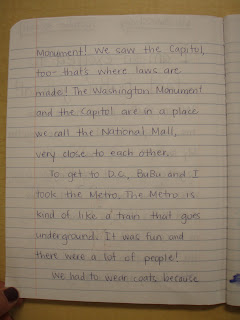 Monument! We saw the Capitol,
too- that's where laws are
made! The Washington Monument
and the Capitol are in a place
we call the National Mall,
very close to each other.
To get to D.C., BaBa and I
took the Metro. The Metro is
kind of like a train that goes
underground. It was fun and
there were a lot of people!
We had to wear coats because